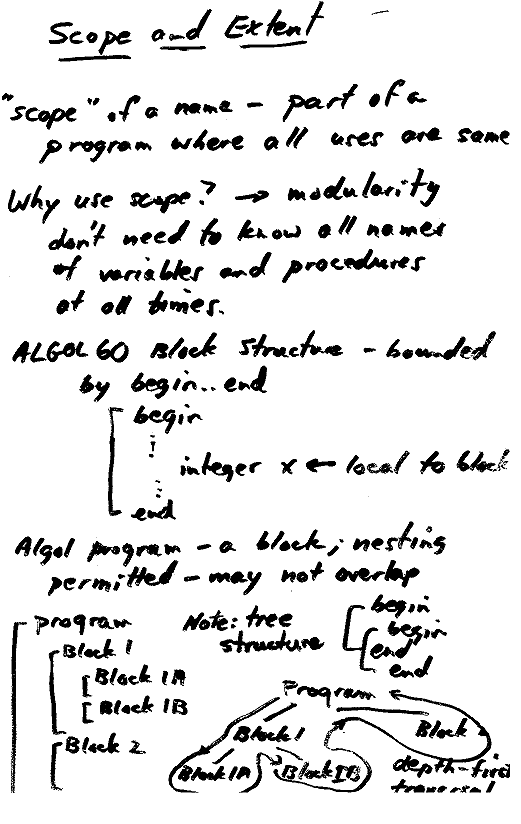 Scope and Extent
"scope" of a name - part of a
program where all uses are same
Why use scope? → modularity
don't need to know all names
of variables and procedures
at all times.
ALGOL 60 Block Structure - bounded
by begin..end
begin
integer x ← local to block
end
Algol program - a block; nesting
permitted - may not overlap
program
Block 1
Block 1A
Block 1B
Block 2
Note: tree
structure
begin
begin
end
end
Program
Block 1
Block
Block 1A
Block 1B
depth-first
traversal